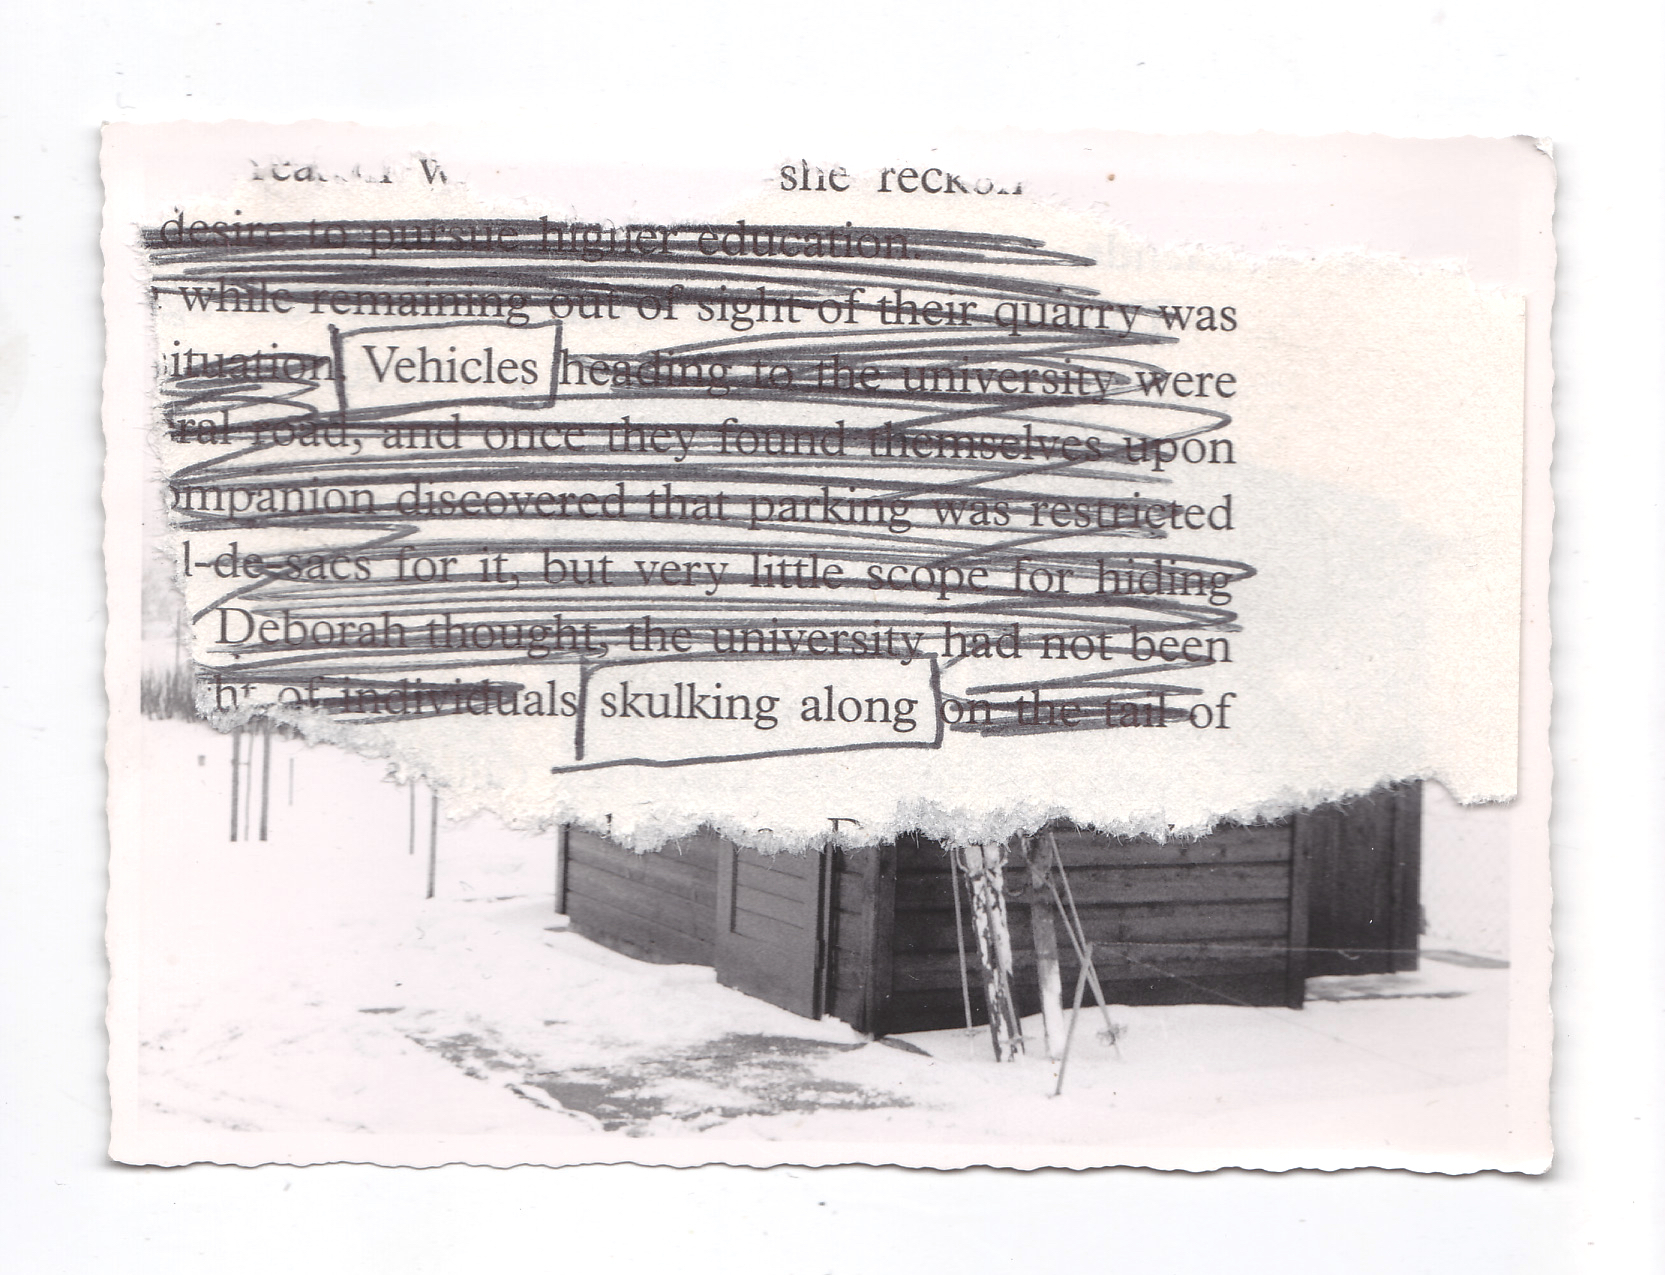 she
desire to pursue higher education.
while remaining out of sight of their quarry was
ituation. Vehicles heading to the university were
ral road, and once they found themselves upon
ompanion discovered that parking was restricted
l-de-sacs for it, but very little scope for hiding
Deborah thought, the university had not been
ht of individuals skulking along on the tail of